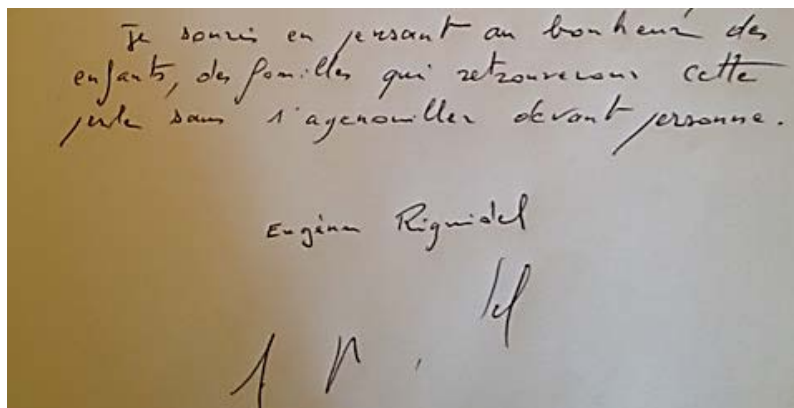 Je souris en pensant au bonheur des
enfants, des familles qui retrouverons cette
perle sans s'agenouiller devant personne.
Eugène Riguidel